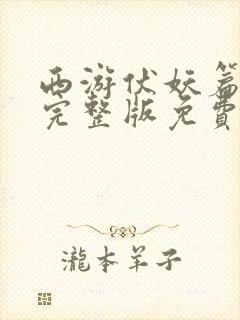 西游伏妖篇
完整版免費
瀧本羊子